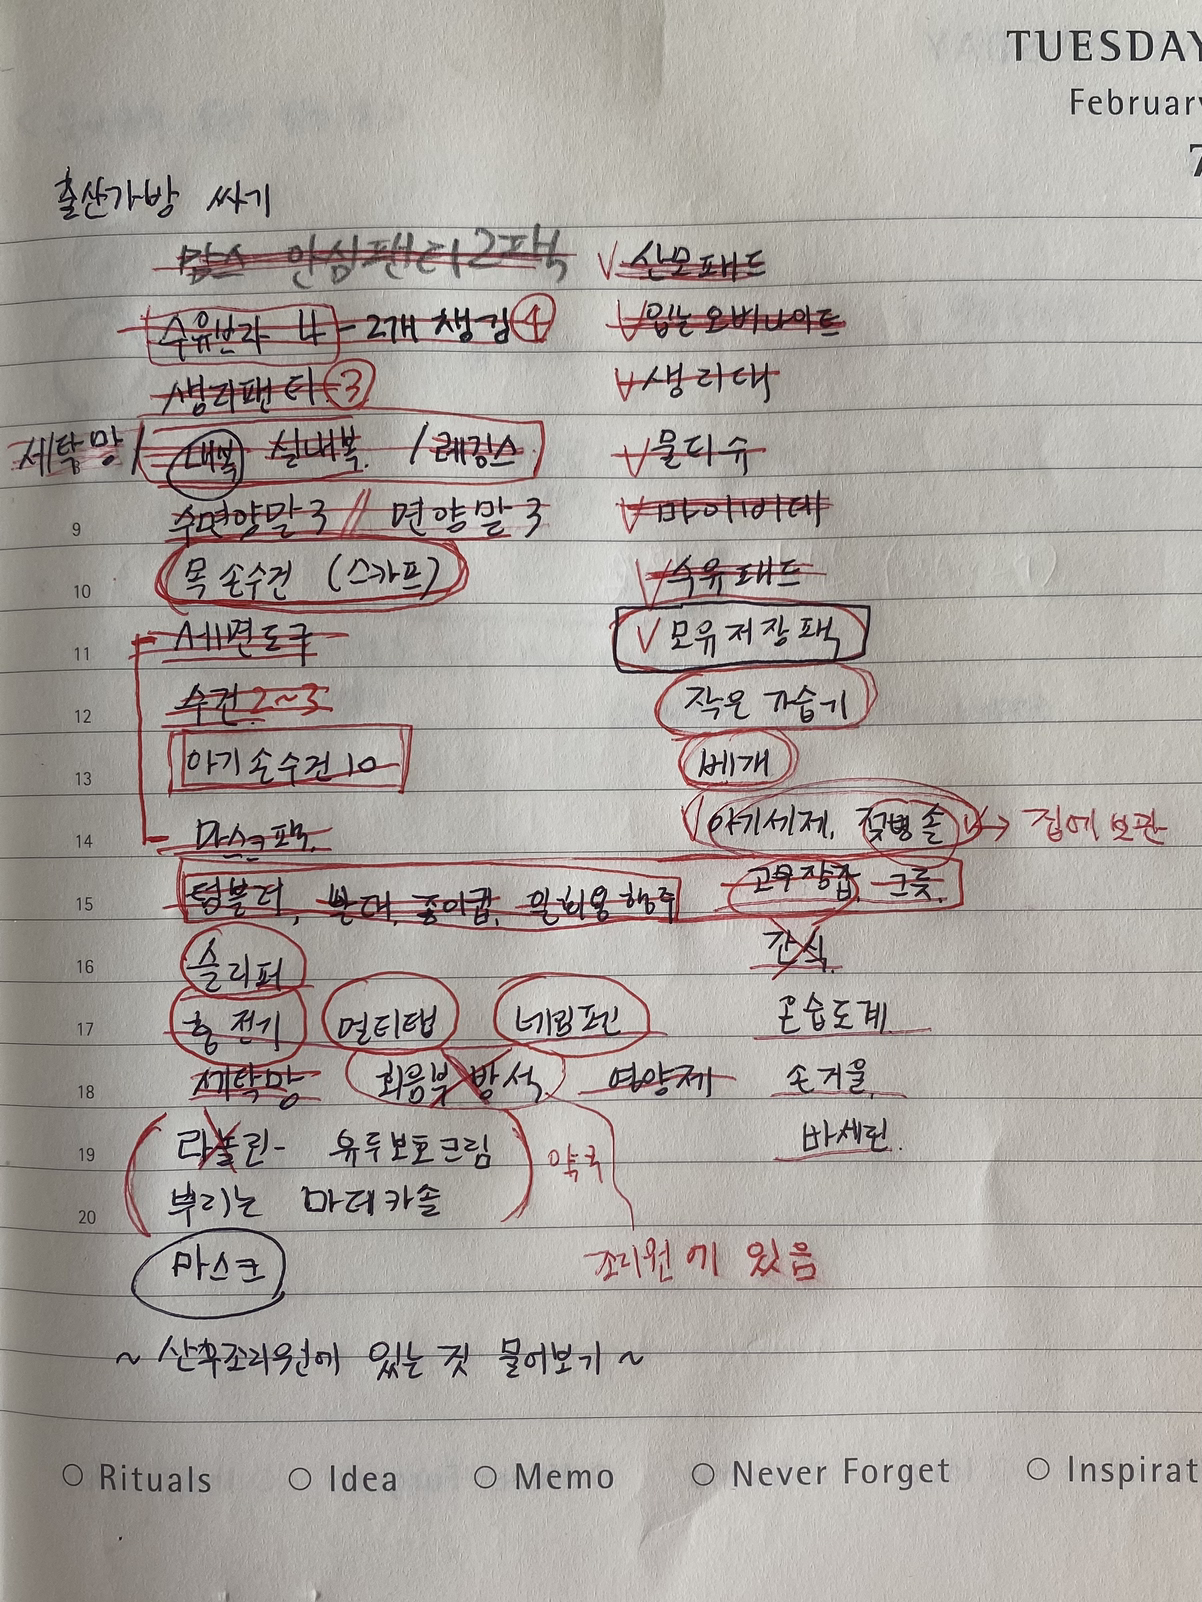 TUESDAY
February
7
출산가방 싸기
맘스 안심팬티 2팩 ∨ 산모패드
수유브라 4 - 2개 챙김 ④ ∨ 입는 오버나이트
생리팬티 ③ ∨ 생리대
세탁망 / 내복 실내복. / 레깅스 ∨ 물티슈
9 수면양말 3 // 면양말 3 ∨ 마이비데
10 목 손수건 (스카프) ∨ 수유패드
11 세면도구 ∨ 모유저장팩
12 수건 2~3 작은 가습기
13 아기 손수건 10 베개
14 마스크팩. 아기세제, 젖병솔 → 집에 보관
15 텀블러, 빨대, 종이컵, 일회용 행주 고무장갑, 그릇,
16 슬리퍼 간식.
17 충전기 멀티탭 네임펜 온습도계
18 세탁망 회음부 방석. 영양제 손거울.
19 라놀린- 유두보호크림 약국 바세린.
20 뿌리는 마데카솔
마스크 조리원에 있음
~ 산후조리원에 있는 것 물어보기 ~
Rituals Idea Memo Never Forget Inspirat